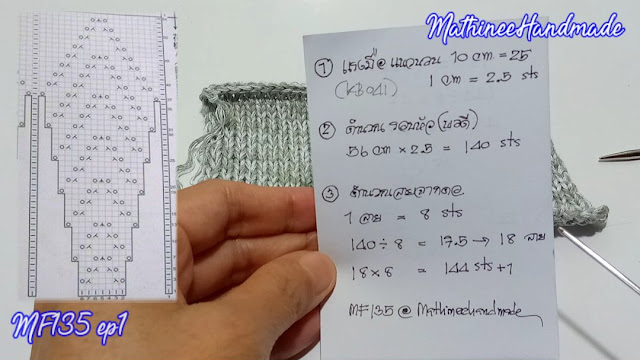 MathineeHandmade
① เทนชั่น @ แนวนอน 10 cm = 25
(KB041) 1 cm = 2.5 sts
② คำนวณ รอบหัว (พอดี)
56 cm × 2.5 = 140 sts
③ คำนวณลายจากคอ
1 ลาย = 8 sts
140 ÷ 8 = 17.5 → 18 ลาย
18 × 8 = 144 sts + 1
MF135 @ Mathineehandmade
MF135 ep1